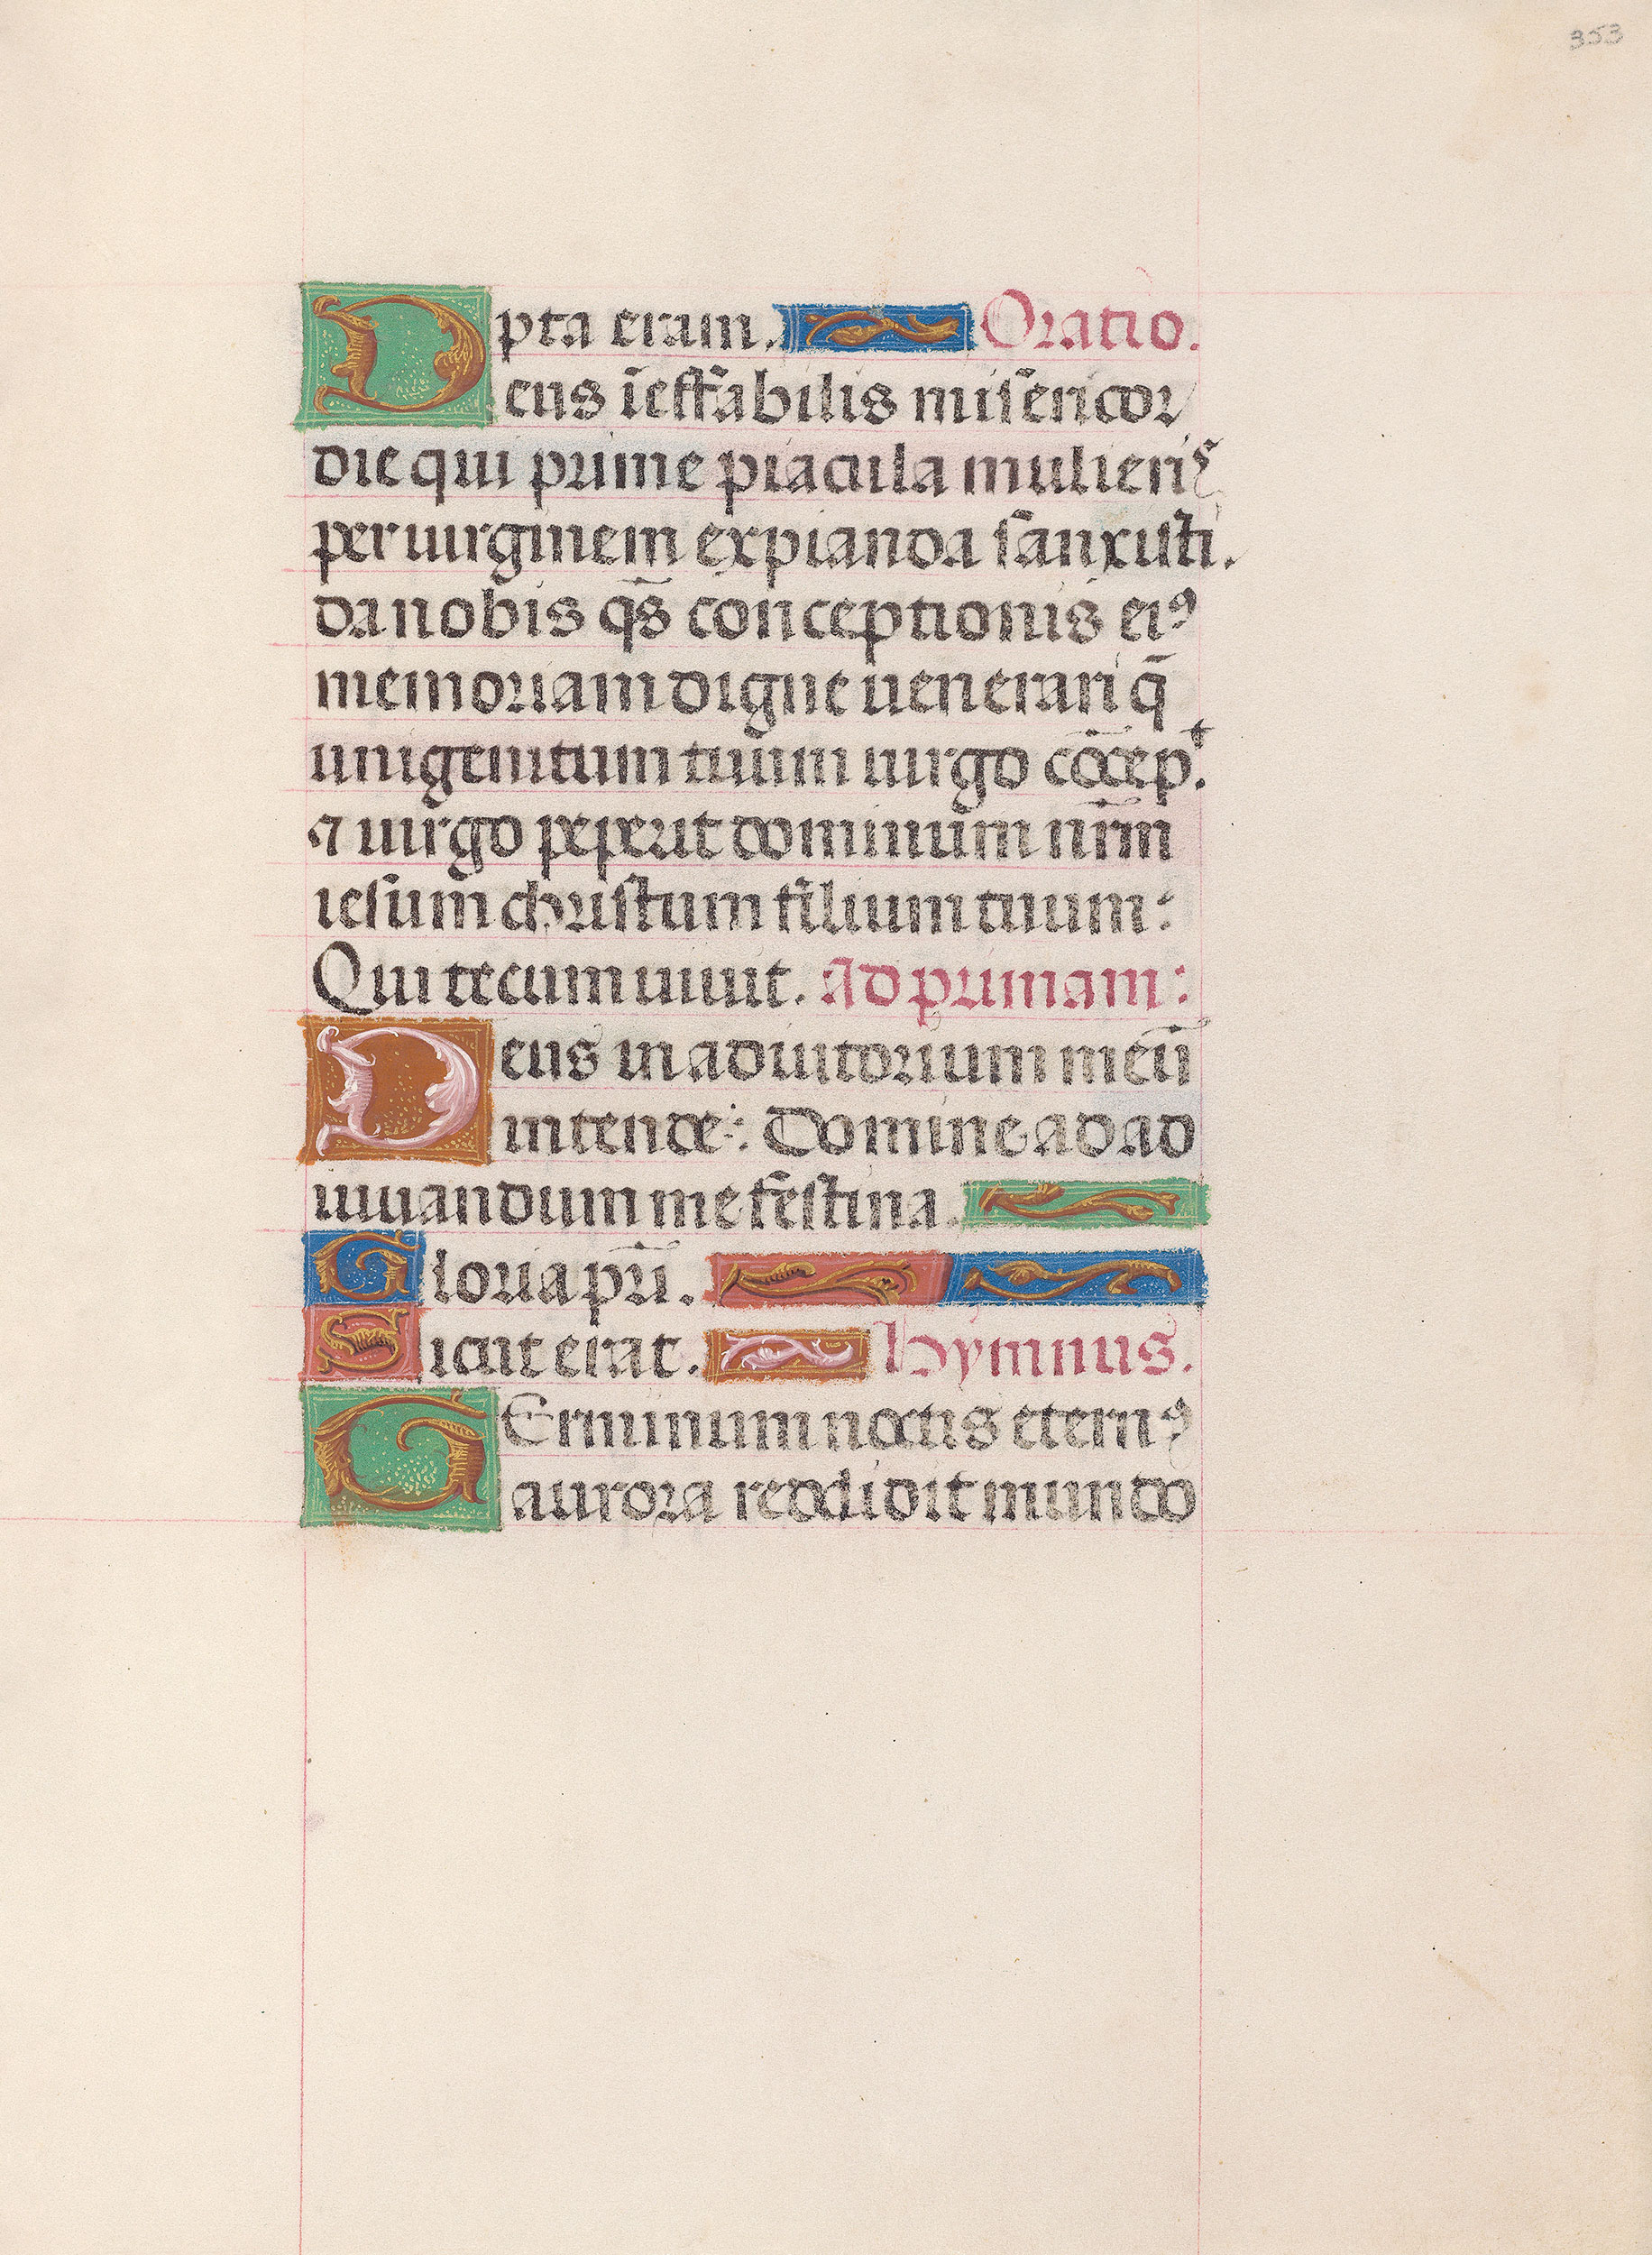 353
pta eram. Oratio.
Deus īeffabilis misericor
die qui prime piacula mulieriˢ
per uirginem expianda sanxisti.
da nobis qs̄ conceptionis eiꝰ
memoriam digne uenerari q̄
unigenitum tuum uirgo cōcepᵗ.
⁊ uirgo peperit dominum nr̄m
iesum christum filium tuum:
Qui tecum uiuit. Ad primam:
Deus in adiutorium meū
intende: Domine ad ad
iuuandum me festina.
Gloria pr̄i.
Sicut erat. hymnus.
TErminum noctis eternꝰ
aurora reddidit mundo